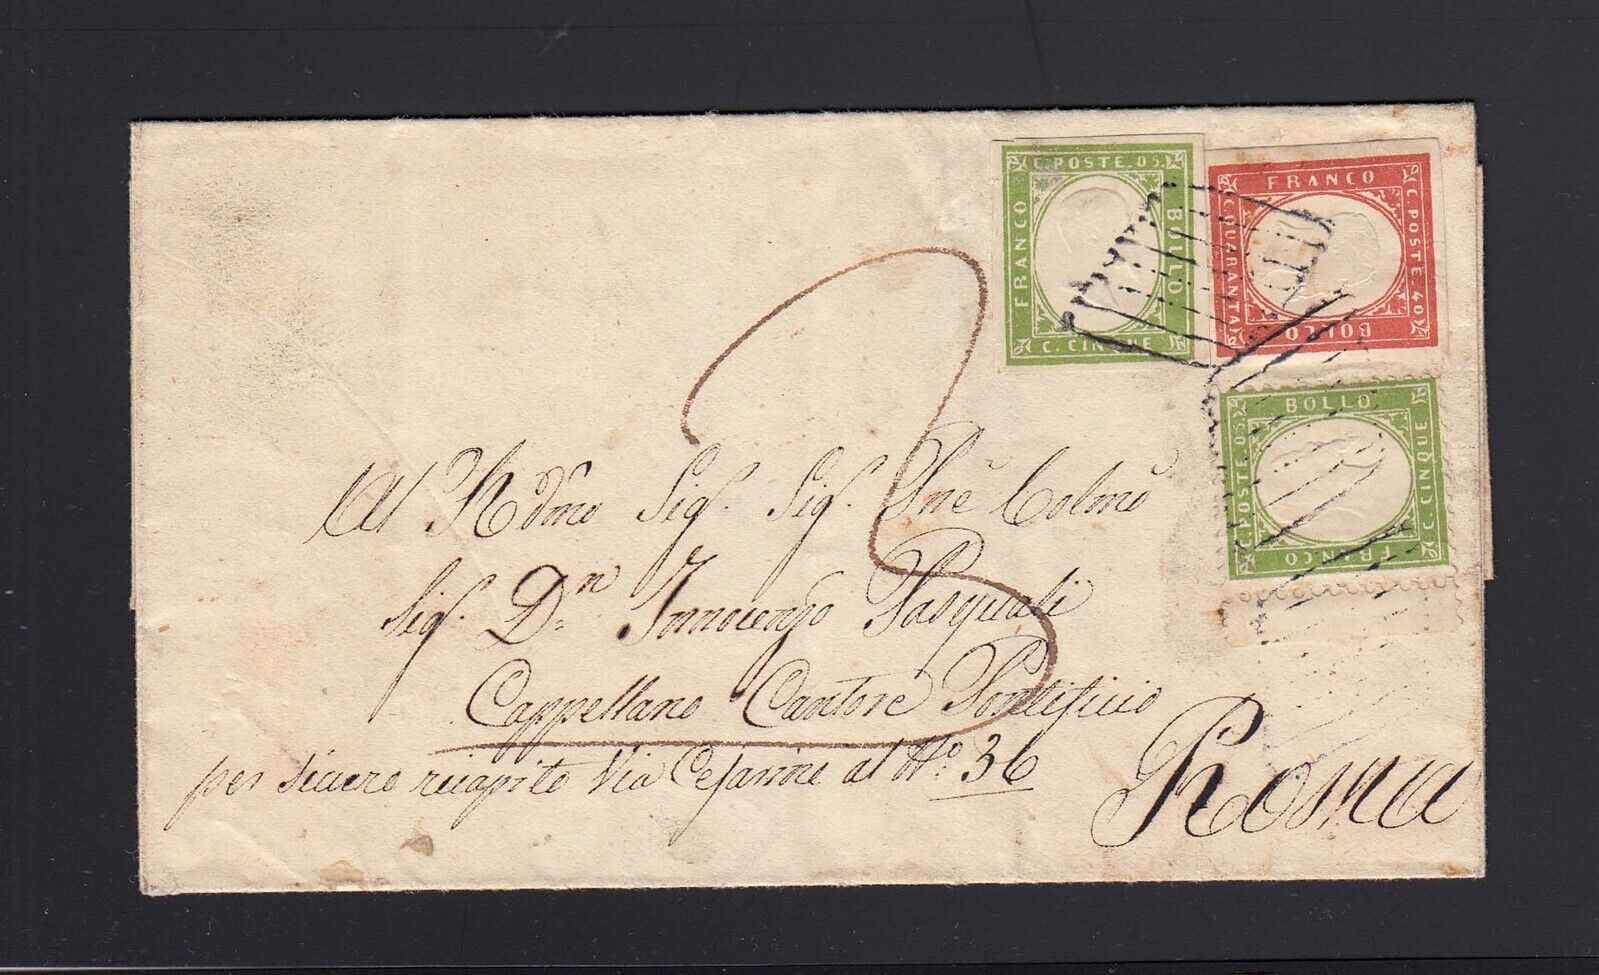 C. POSTE. 05.
FRANCO
BOLLO
C. CINQUE
FRANCO
C. POSTE. 40
C. QUARANTA
BOLLO
BOLLO
C. POSTE. 05.
C. CINQUE
FRANCO
3
Al Rdmo Sig. Sig. Pne Colmo
Sig. Dn Innocenzo Pasquali
Cappellano Cantore Pontificio
per sicuro recapito Via Cesarini al No. 36
Roma